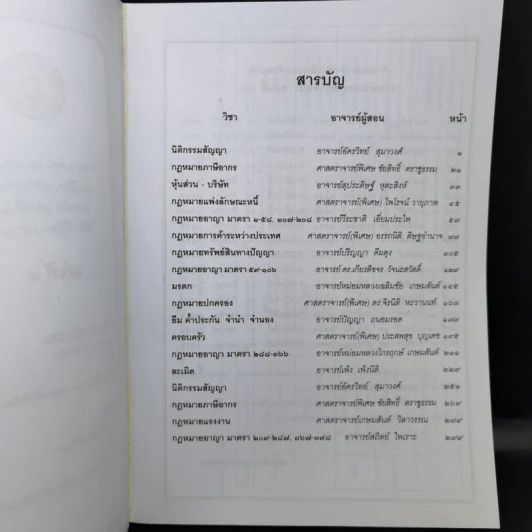 สารบัญ
วิชา อาจารย์ผู้สอน หน้า
นิติกรรมสัญญา อาจารย์อัครวิทย์ สุมาวงศ์ ๑
กฎหมายภาษีอากร ศาสตราจารย์พิเศษ ชัยสิทธิ์ ตราชูธรรม ๒๑
หุ้นส่วน - บริษัท อาจารย์สุประดิษฐ์ หุตะสิงห์ ๓๓
กฎหมายแพ่งลักษณะหนี้ ศาสตราจารย์(พิเศษ) ไพโรจน์ วายุภาพ ๔๕
กฎหมายอาญา มาตรา ๑-๕๘, ๑๐๗-๒๐๘ อาจารย์วีระชาติ เอี่ยมประไพ ๕๗
กฎหมายการค้าระหว่างประเทศ ศาสตราจารย์(พิเศษ) อรรถนิติ ดิษฐอำนาจ ๗๗
กฎหมายทรัพย์สินทางปัญญา อาจารย์ปริญญา ดีผดุง ๑๐๕
กฎหมายอาญา มาตรา ๕๙-๑๐๖ อาจารย์ ดร.เกียรติขจร วัจนะสวัสดิ์ ๑๒๙
มรดก อาจารย์หม่อมหลวงเฉลิมชัย เกษมสันต์ ๑๔๕
กฎหมายปกครอง ศาสตราจารย์(พิเศษ) ดร.จิรนิติ หะวานนท์ ๑๖๘
ยืม ค้ำประกัน จำนำ จำนอง อาจารย์ปัญญา ถนอมรอด ๑๗๗
ครอบครัว ศาสตราจารย์(พิเศษ) ประสพสุข บุญเดช ๑๙๕
กฎหมายอาญา มาตรา ๒๘๘-๓๖๖ อาจารย์หม่อมหลวงไกรฤกษ์ เกษมสันต์ ๒๑๑
ละเมิด อาจารย์เพ็ง เพ็งนิติ ๒๒๙
นิติกรรมสัญญา อาจารย์อัครวิทย์ สุมาวงศ์ ๒๕๑
กฎหมายภาษีอากร ศาสตราจารย์พิเศษ ชัยสิทธิ์ ตราชูธรรม ๒๖๙
กฎหมายแรงงาน ศาสตราจารย์เกษมสันต์ วิลาวรรณ ๒๘๙
กฎหมายอาญา มาตรา ๒๐๙-๒๘๗, ๓๖๗-๓๙๘ อาจารย์สถิตย์ ไพเราะ ๒๙๙